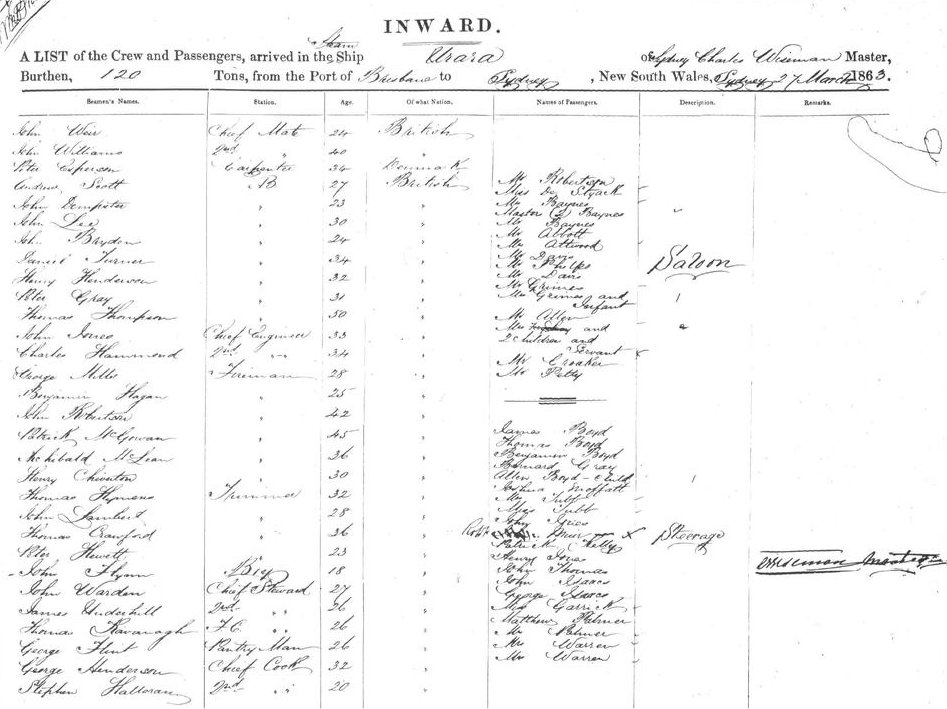 INWARD.
A LIST of the Crew and Passengers, arrived in the Steam Ship Urara of Sydney Charles Wiseman Master,
Burthen, 120 Tons, from the Port of Brisbane to Sydney, New South Wales, Sydney 27 March 1863.
Seamen's Names. Station. Age. Of what Nation. Names of Passengers. Description. Remarks.
John Weir Chief Mate 24 British
John Williams 2nd " 40 "
Peter Esperson Carpenter 34 Denmark
Andrew Scott AB 27 British
John Dempster " 23 "
John Lee " 30 "
John Brydon " 24 "
Daniel Turner " 34 "
Henry Henderson " 32 "
Peter Gray " 31 "
Thomas Thompson " 50 "
John Jones Chief Engineer 33 "
Charles Hammond 2nd " 34 "
George Mills Fireman 28 "
Benjamin Hagan " 25 "
John Robertson " 42 "
Patrick McGowan " 45 "
Archibald McLean " 26 "
Henry Chiverton " 30 "
Thomas Hymens Trimmer 32 "
John Lambert " 28 "
Thomas Crawford " 36 "
Peter Hewett " 23 "
John Flynn Boy 18 "
John Warden Chief Steward 27 "
James Underhill 2nd " 26 "
Thomas Kavanagh F.C. " 26 "
George Flint Pantry Man 26 "
George Henderson Chief Cook 32 "
Stephen Halloran 2nd " 20 "
Mr Robertson
Miss De Strack
Mrs Baynes
Master (2) Baynes
Mr Baynes
Mr Abbott
Mr Attwood
Mr Davis
Mr Phelps
Mr Davis
Saloon
Mr Grimes
Mrs Grimes and
Infant
Mr Allen
Mrs and
2 children and
Servant
Mr Croaker
Mr Petty
James Boyd
Thomas Boyd
Benjamin Boyd
Bernard Gray
Allen Boyd - child
Joshua Moffatt
Mr Tubb
Mrs Tubb
John Gries
Robt Muir x
Steerage
Patrick Kelly
Henry Jones
John Thomas
John Isaacs
George Isaacs
Mrs Garrick
Matthew Palmer
Mr Palmer
Mrs Warren
Mr Warren
CWiseman Master